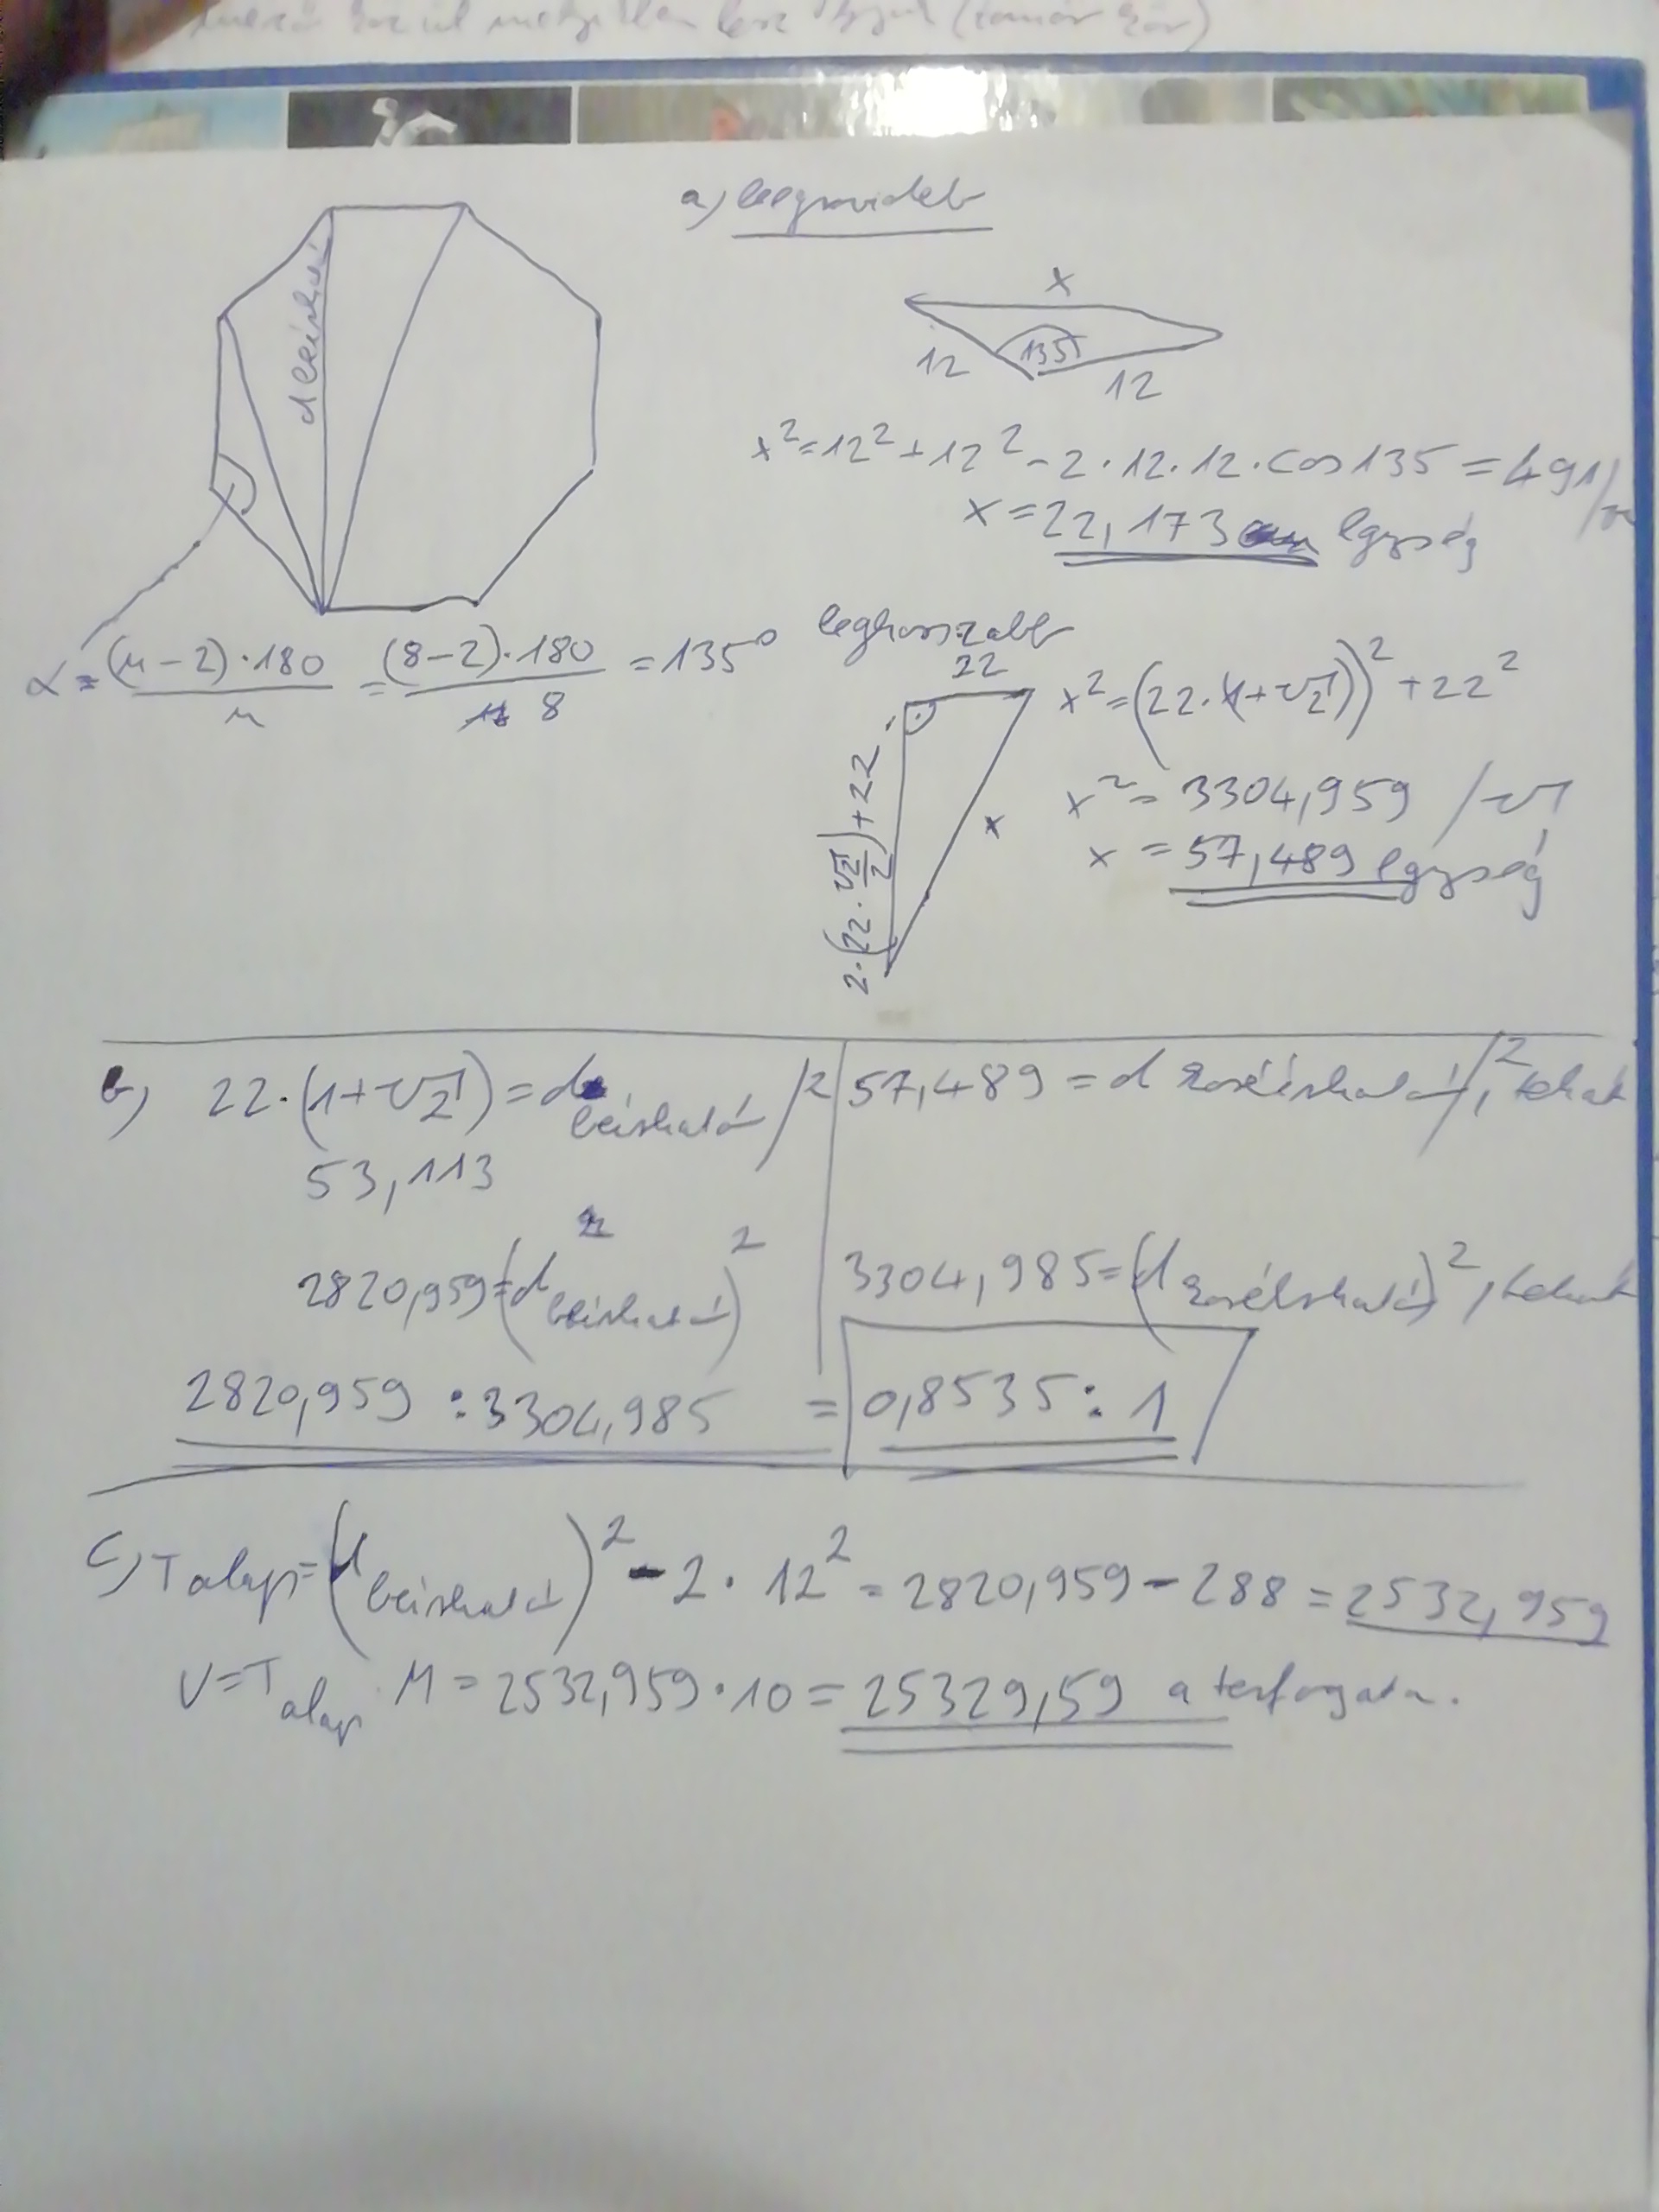 (tanár úr)
a) legrövidebb
d beírható
x
12 135° 12
x² = 12² + 12² - 2·12·12·cos135 = 491 /√
x = 22,173 egység
α = (n-2)·180 / n = (8-2)·180 / 8 = 135°
leghosszabb
22
2·(22·√2/2)+22
x
x² = (22·(1+√2))² + 22²
x² = 3304,959 /√
x = 57,489 egység
b) 22·(1+√2) = d beírható /²
53,113
2820,959 = (d beírható)²
57,489 = d köréírható /², tehát
3304,985 = (d köréírható)², tehát
2820,959 : 3304,985 = 0,8535 : 1
c) T alap = (d beírható)² - 2·12² = 2820,959 - 288 = 2532,959
V = T alap · M = 2532,959·10 = 25329,59 a térfogata.